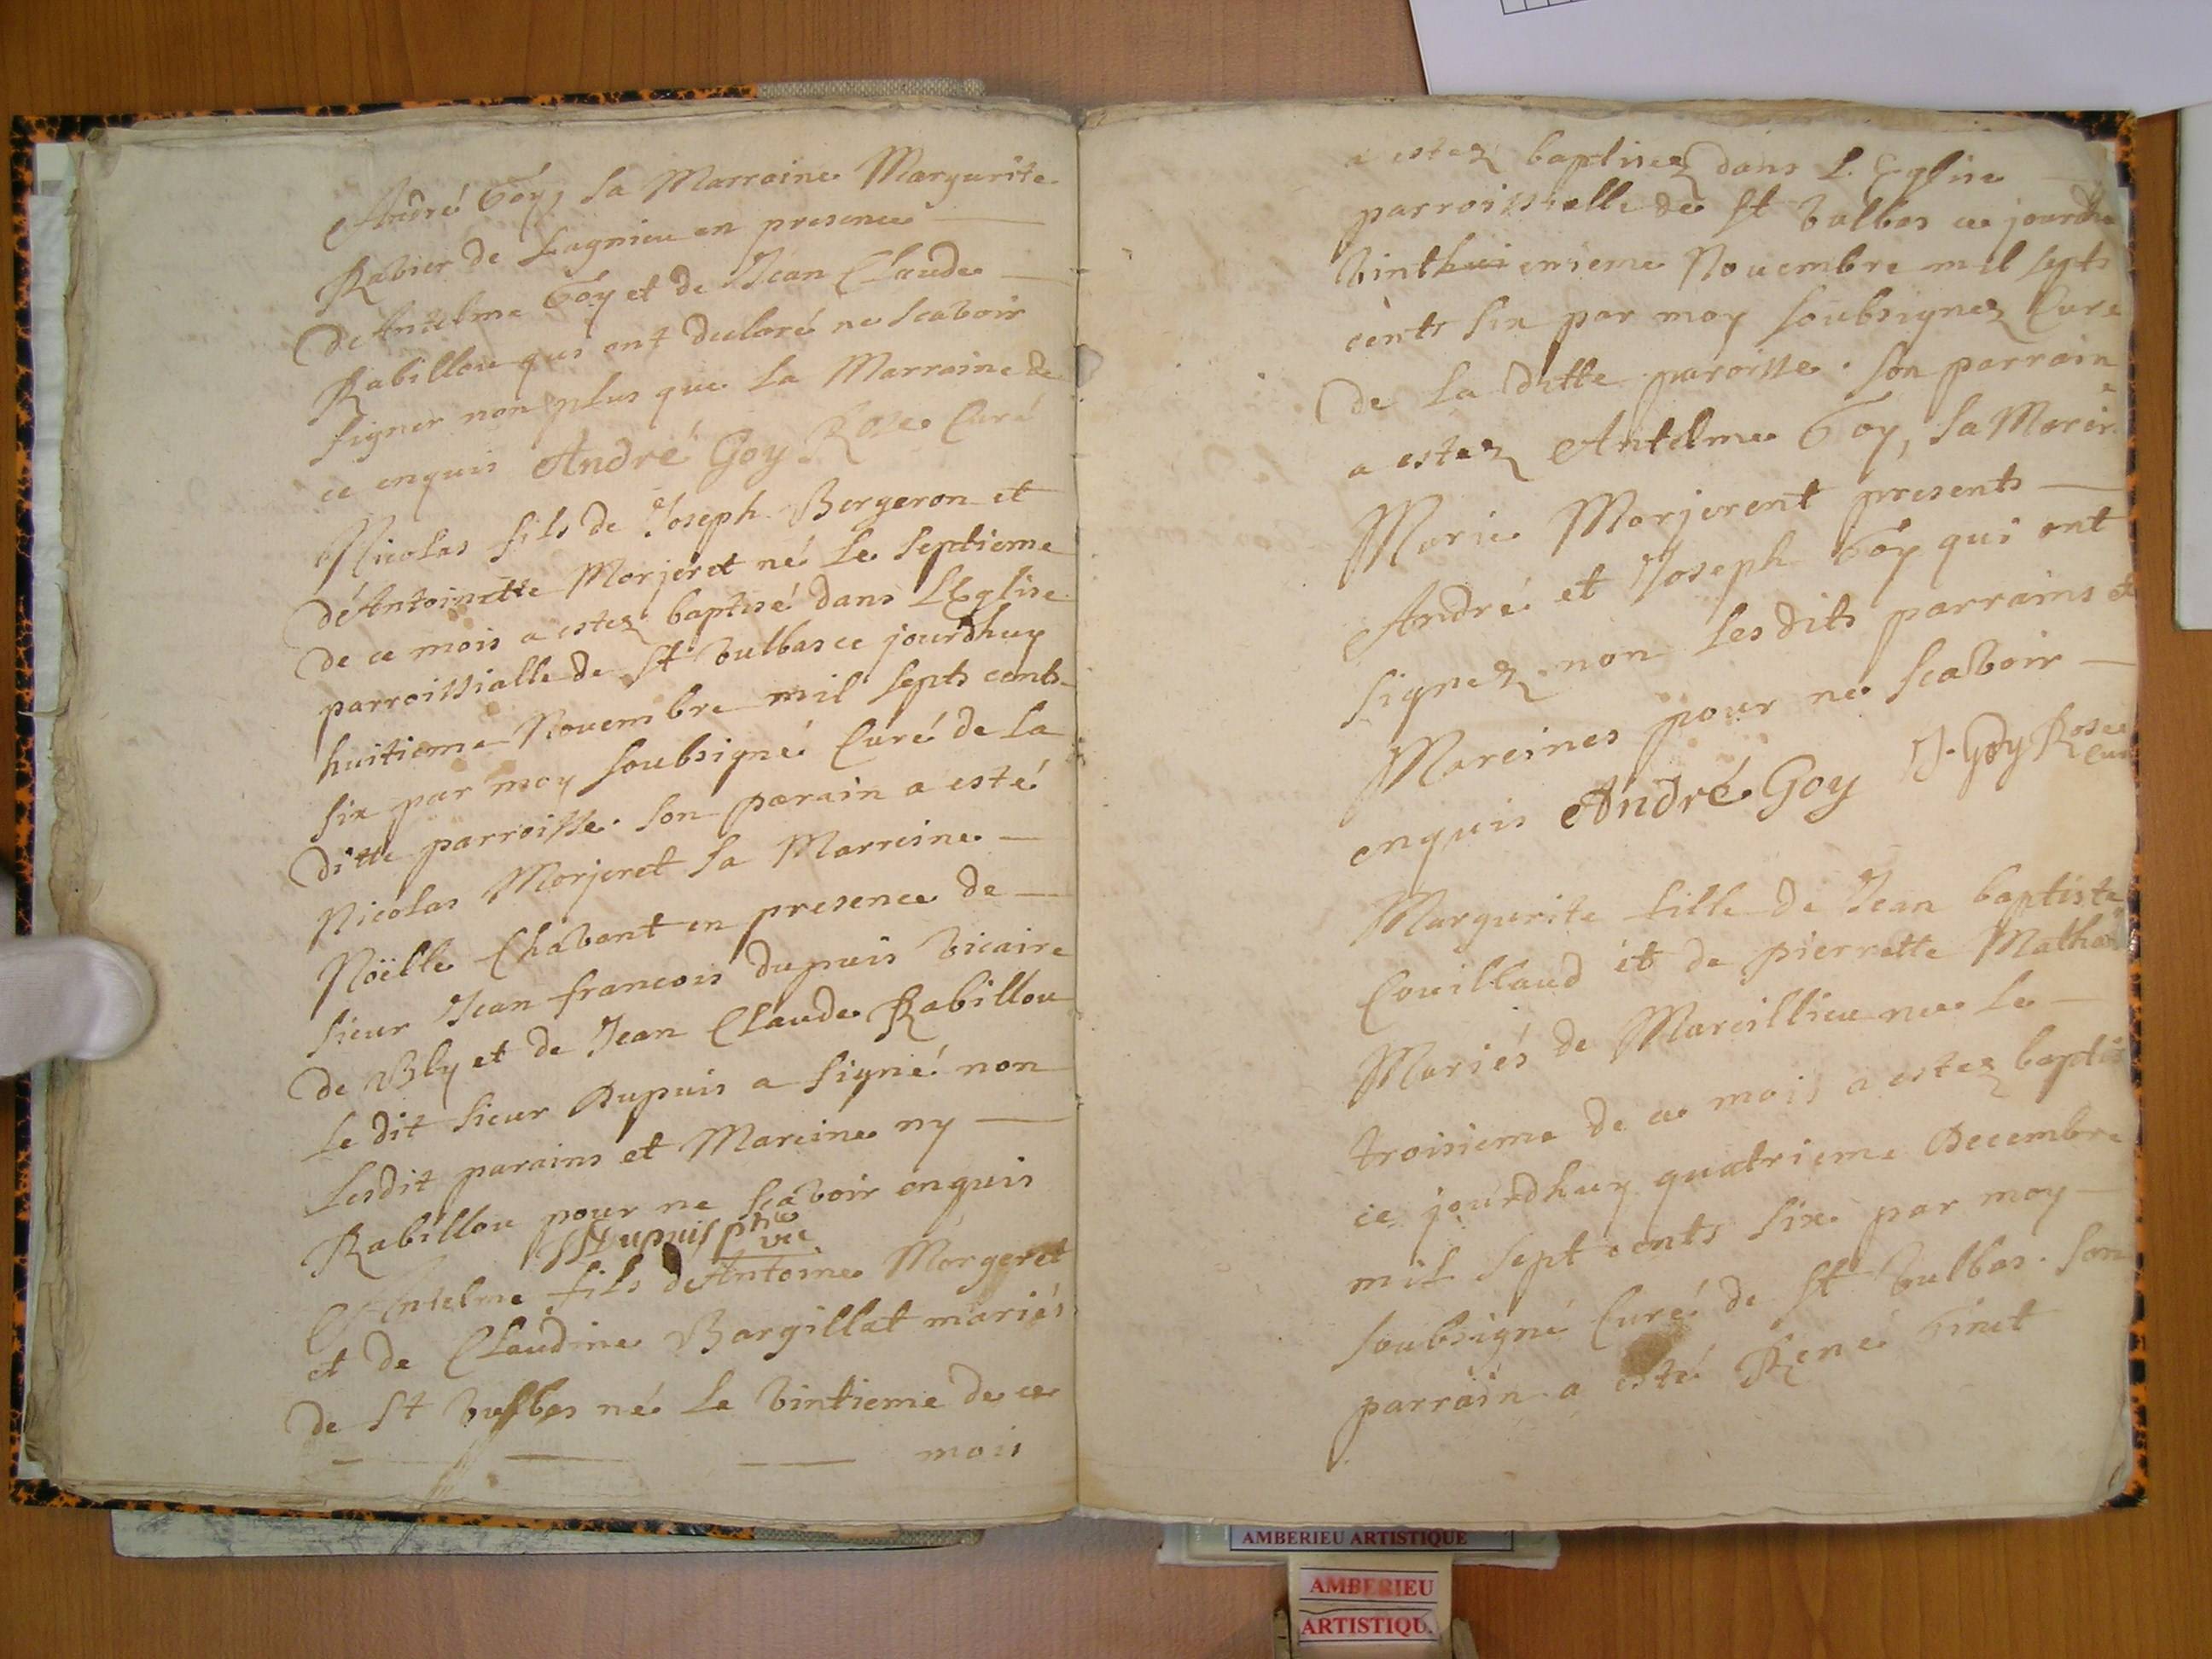 André Goy, sa Marraine Margurite
Rabier de Lagnieu en presence
de Antelme Goy et de Jean Claude
Rabillou qui ont declaré ne scavoir
signer non plus que la Marraine de
ce enquis André Goy Rose Curé
Nicolas fils de Joseph Bergeron et
dé Antoinette Morjeret né le septieme
de ce mois a estez baptisé dans LEglise
parroissialle de St Vulbas ce jourdhuy
huitieme Novembre mil septs cents
six par moy soubsigné Curé de la
ditte parroisse. son parain a esté
Nicolas Morjeret sa Marreine
Noëlle Chavant en presence de
sieur Jean francois dupuis vicaire
de Bly et de Jean Claude Rabillou
le dit sieur Dupuis a signé non
lesdit parains et Mareine ny
Rabillou pour ne scavoir enquis
Dupuis ptre
vic
Antelme fils de Antoine Morgeret
et de Claudine Bargillat mariés
de St Vulbas né le vintieme de ce
mois
a estez baptisez dans L Eglise
parroissialle de St Vulbas ce jourdh
vinthui enieme Novembre mil septs
cents six par moy soubsignez Curé
de la ditte paroisse. son parrain
a estez Antelme Goy, sa Mareine
Marie Morjerent presents
André et Joseph Goy qui ont
signez non lesdits parrains et
Mareines pour ne scavoir
enquis André Goy J. Goy Rose
Curé
Margurite fille de Jean baptiste
Couillaud et de pierrette
Mariés de Marcillieu nee le
troisieme de ce mois a estez baptis
ce jourdhuy quatrieme Decembre
mil sept cents six par moy
soubsigné Curé de St Vulbas. son
parrain a esté René Ginet
AMBERIEU ARTISTIQUE
AMBERIEU
ARTISTIQU